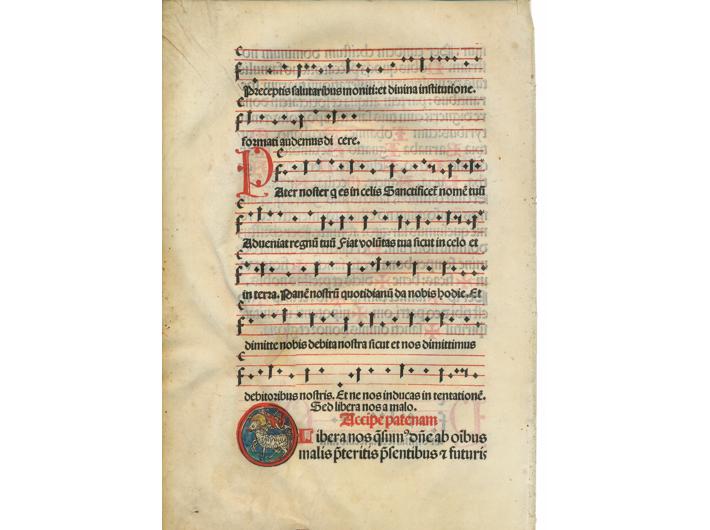 Preceptis salutaribus moniti: et divina institutione.
formati audemus di cere.
PAter noster q es in celis Sanctificet̄ nomē tuū
Adueniat regnū tuū Fiat volūtas tua sicut in celo et
in terra. Panē nostrū quotidianū da nobis hodie. Et
dimitte nobis debita nostra sicut et nos dimittimus
debitoribus nostris. Et ne nos inducas in tentationē.
Sed libera nos a malo.
Accipe patenam
Libera nos q̄sumꝰ dn̄e ab oībus
malis p̄teritis p̄sentibus ⁊ futuris